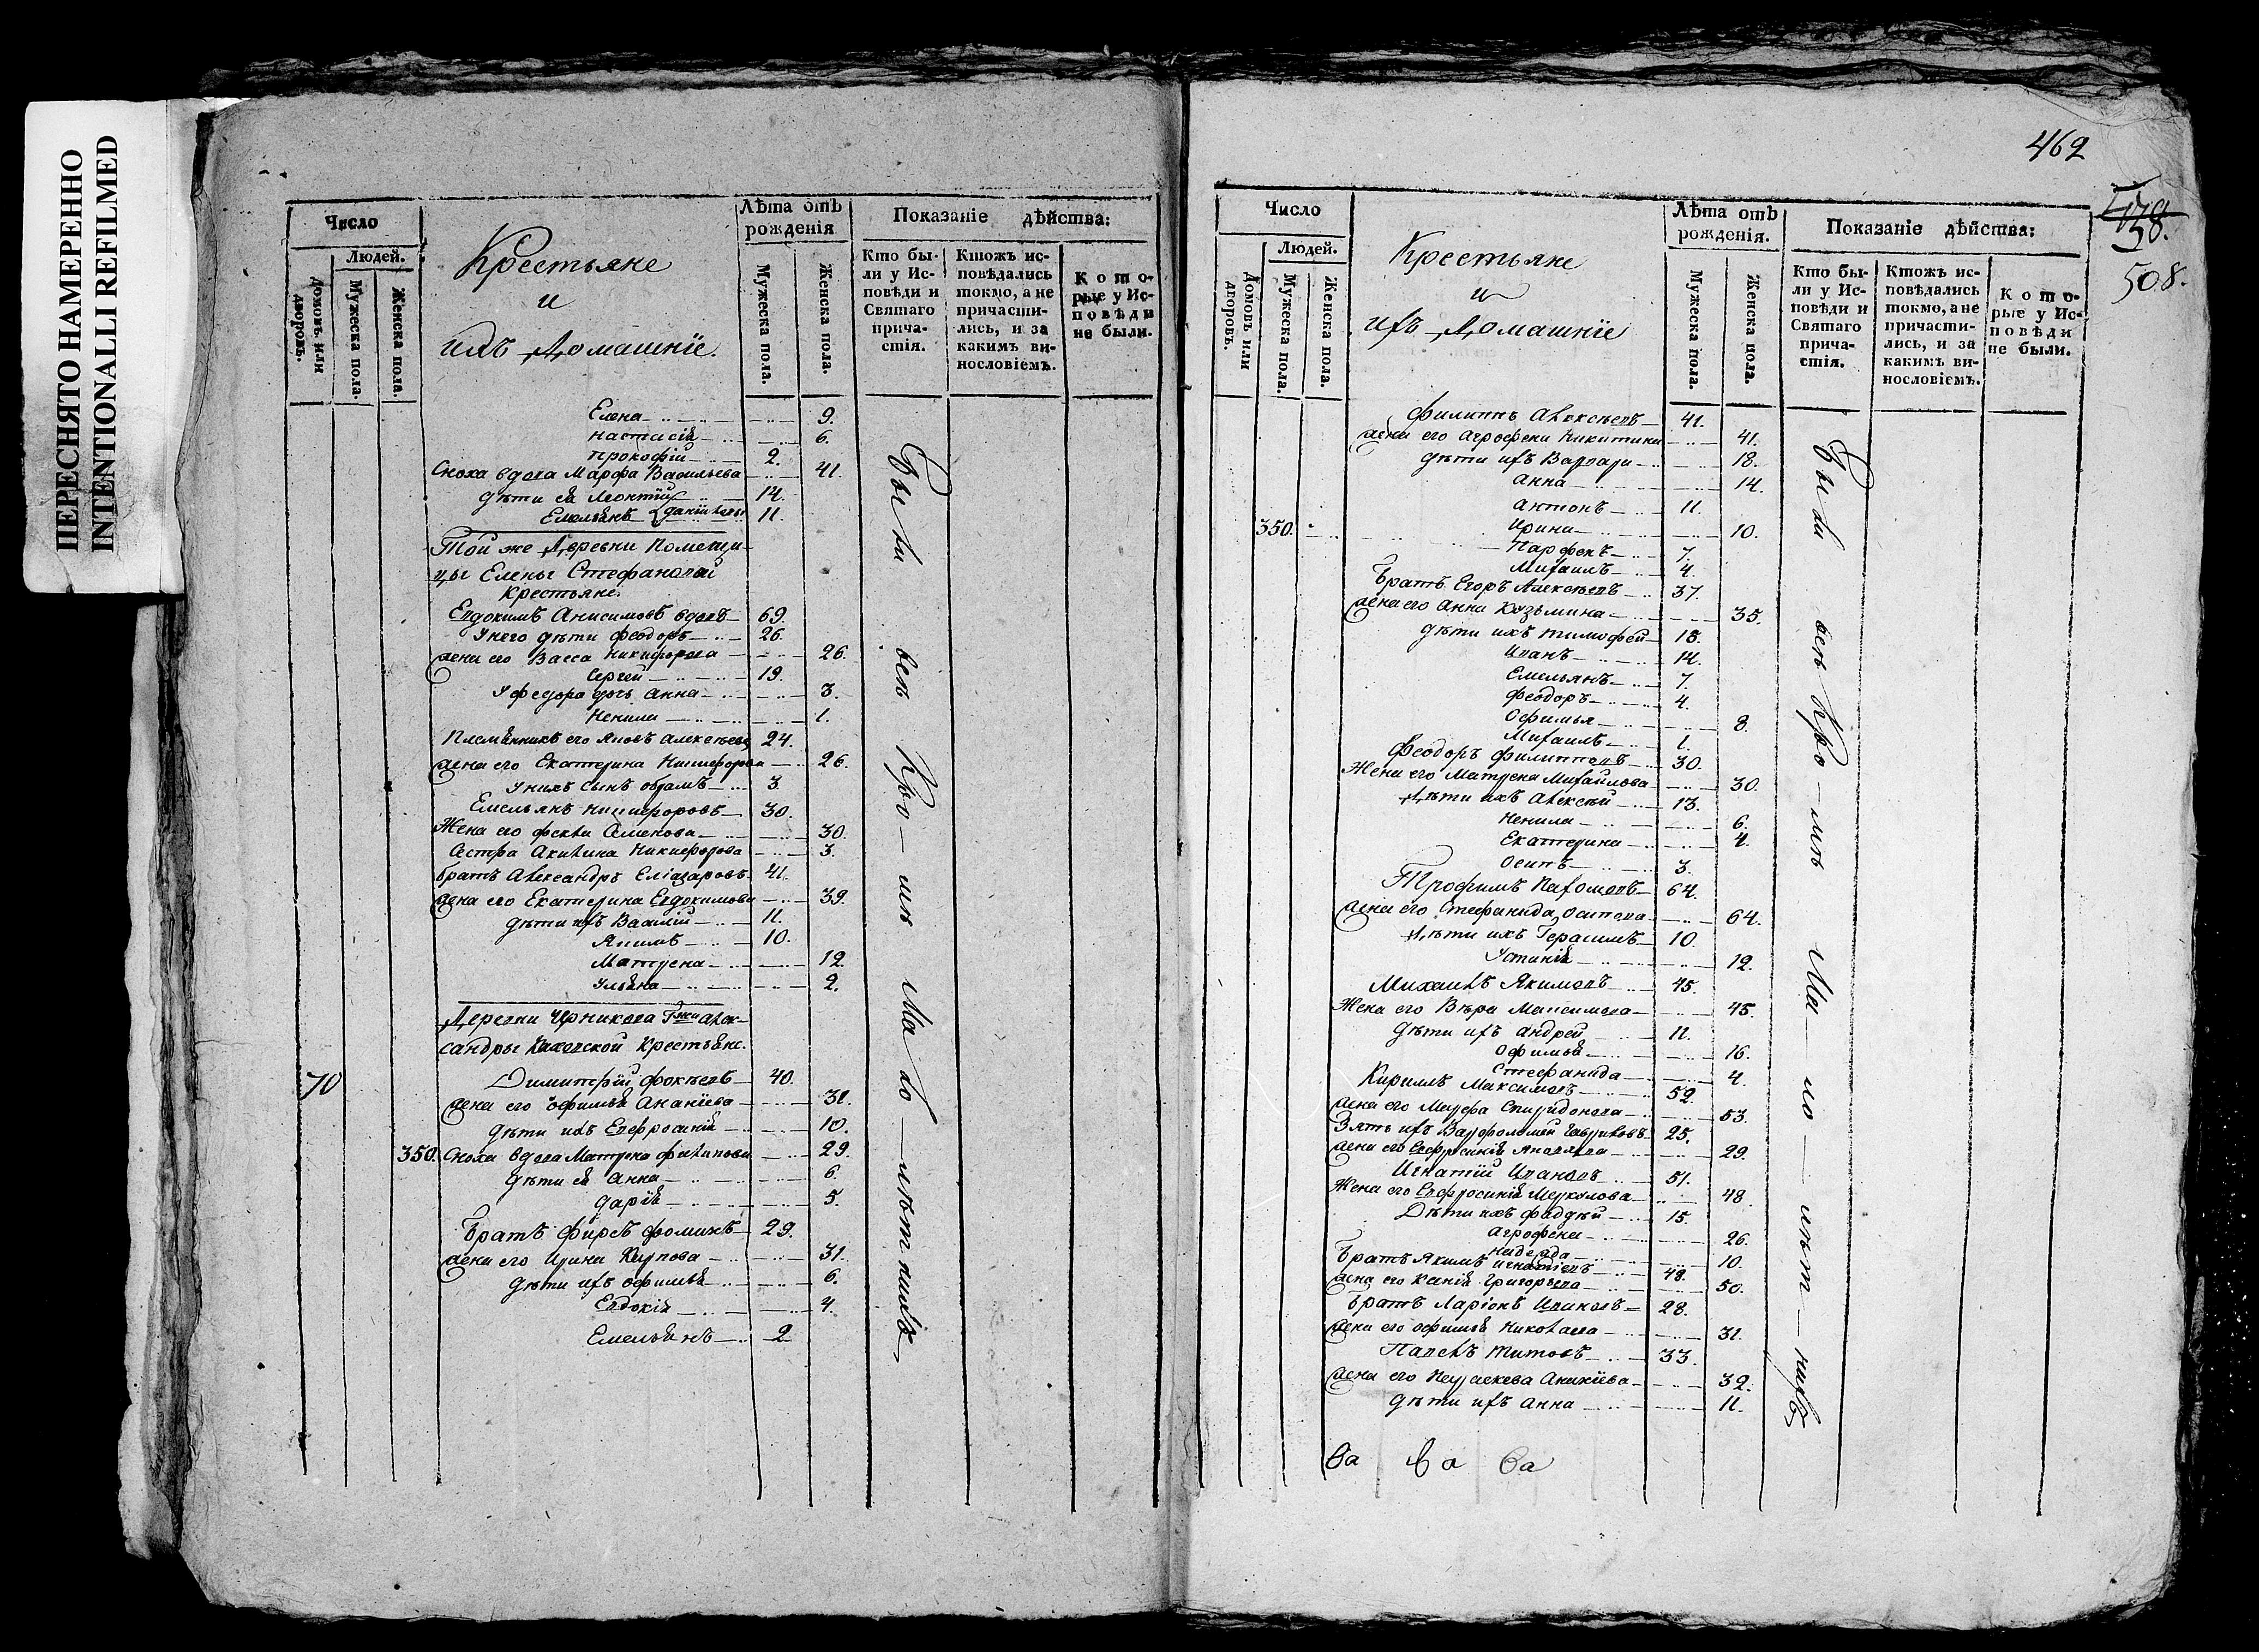 ПЕРЕСНЯТО НАМЕРЕННО
INTENTIONALLI REFILMED
Число
Людей.
Домовъ или дворовъ.
Мужеска пола.
Женска пола.
Крестьяне
и
ихъ Домашнїе.
Лѣта отъ рожденїя
Мужеска пола.
Женска пола.
Показанїе дѣйства:
Кто были у Исповѣди и Святаго причастїя.
Ктожъ исповѣдались токмо, а не причастились, и за какимъ винословїемъ.
Которые у Исповѣди не были.
Елена 9.
Настасїя 6.
Прокофїй 2.
Сноха вдова Марфа Васильева 41.
дѣти ея Леонтїй 14.
Емельянъ Данїиловы 11.
Той же Деревни Помещи-
цы Елены Стефановой
Крестьяне.
Евдокимъ Анисимовъ вдовъ 69.
У него дѣти Феодоръ 26.
жена его Васса Никифорова 26.
Сергей 19.
У Федора дочь Анна 3.
Ненила 1.
Племянникъ его Яковъ Алексеевъ 24.
жена его Екатерина Никифорова 26.
У нихъ сынъ Абрамъ 3.
Емельянъ Никифоровъ 30.
Жена его Фекла Семенова 30.
Сестра Акилина Никифорова 3.
Братъ Александръ Елїазаровъ 41.
жена его Екатерина Евдокимова 39.
дѣти ихъ Василїй 11.
Якимъ 10.
Матрена 12.
Ульяна 2.
Деревни Черникова Гжи Алек-
сандры Каховской Крестьяне.
70
Димитрїй Фокѣевъ 40.
жена его Офимья Ананїева 31.
дѣти ихъ Евфросинїя 10.
350. Сноха вдова Матрена Филипова 29.
дѣти ея Анна 6.
Дарїя 5.
Братъ Фирсъ Фоминъ 29.
жена его Ирина Карпова 31.
дѣти ихъ Офимья 6.
Евдокїя 4.
Емельянъ 2
Были всѣ Кро-мѣ Мало-лѣтнихъ
462
178.
58.
508.
Число
Людей.
Домовъ или дворовъ.
Мужеска пола.
Женска пола.
Крестьяне
и
ихъ Домашнїе
Лѣта отъ рожденїя.
Мужеска пола.
Женска пола.
Показанїе дѣйства:
Кто были у Исповѣди и Святаго причастїя.
Ктожъ исповѣдались токмо, а не причастились, и за какимъ винословїемъ.
Которые у Исповѣди не были.
Филиппъ Алексѣевъ 41.
жена его Агрофена Никитина 41.
дѣти ихъ Варвара 18.
Анна 14.
Антонъ 11.
350. Ирина 10.
Парфенъ 7.
Михаилъ 4.
Братъ Егоръ Алексѣевъ 37.
жена его Анна Козьмина 35.
дѣти ихъ Тимофей 18.
Иванъ 14.
Емельянъ 7.
Феодоръ 4.
Офимья 8.
Михаилъ 1.
Феодоръ Филипповъ 30.
Жена его Матрена Михайлова 30.
Дѣти ихъ Алексѣй 13.
Ненила 6.
Екатерина 4.
Осипъ 3.
Трофимъ Пахомовъ 64.
жена его Стефанида Осипова 64.
Дѣти ихъ Герасимъ 10.
Устинїя 12.
Михаилъ Якимовъ 45.
Жена его Вѣра Максимова 45.
дѣти ихъ Андрей 11.
Офимья 16.
Стефанида 4.
Кирилъ Максимовъ 52.
жена его Марфа Спиридонова 53.
Зять ихъ Варфоломей Гавриловъ 25.
жена его Евфросинїя Яковлева 29.
Игнатїй Ивановъ 51.
Жена его Евфросинїя Меркулова 48.
Дѣти ихъ Фадѣй 15.
Агрофена 26.
Надежда 10.
Братъ Якимъ Игнатїевъ 48.
жена его Ксенїя Григорьева 50.
Братъ Ларїонъ Ивановъ 28.
жена его Офимья Николаева 31.
Павелъ Титовъ 33.
жена его Параскева Ананїева 32.
дѣти ихъ Анна 11.
Были всѣ Кро-мѣ Ма-ло-лѣт-нихъ
ва ва ва